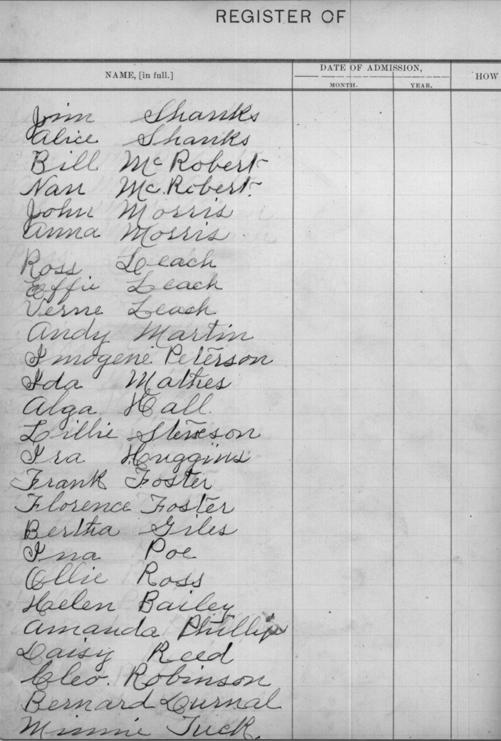 REGISTER OF
NAME, [in full.]
DATE OF ADMISSION,
HOW
MONTH.
YEAR.
Jim Shanks
Alice Shanks
Bill McRobert
Nan Mc.Robert.
John Morris
Anna Morris
Ross Leach
Effie Leach
Verne Leach
Andy Martin
Imogene Peterson
Ida Mathes
Alga Hall
Lillie
Ira Huggins
Frank Foster
Florence Foster
Bertha Giles
Ina Poe
Ollie Ross
Helen Bailey
Amanda Phillips
Daisy Reed
Cleo. Robinson
Bernard Durnal
Minnie Tuck.